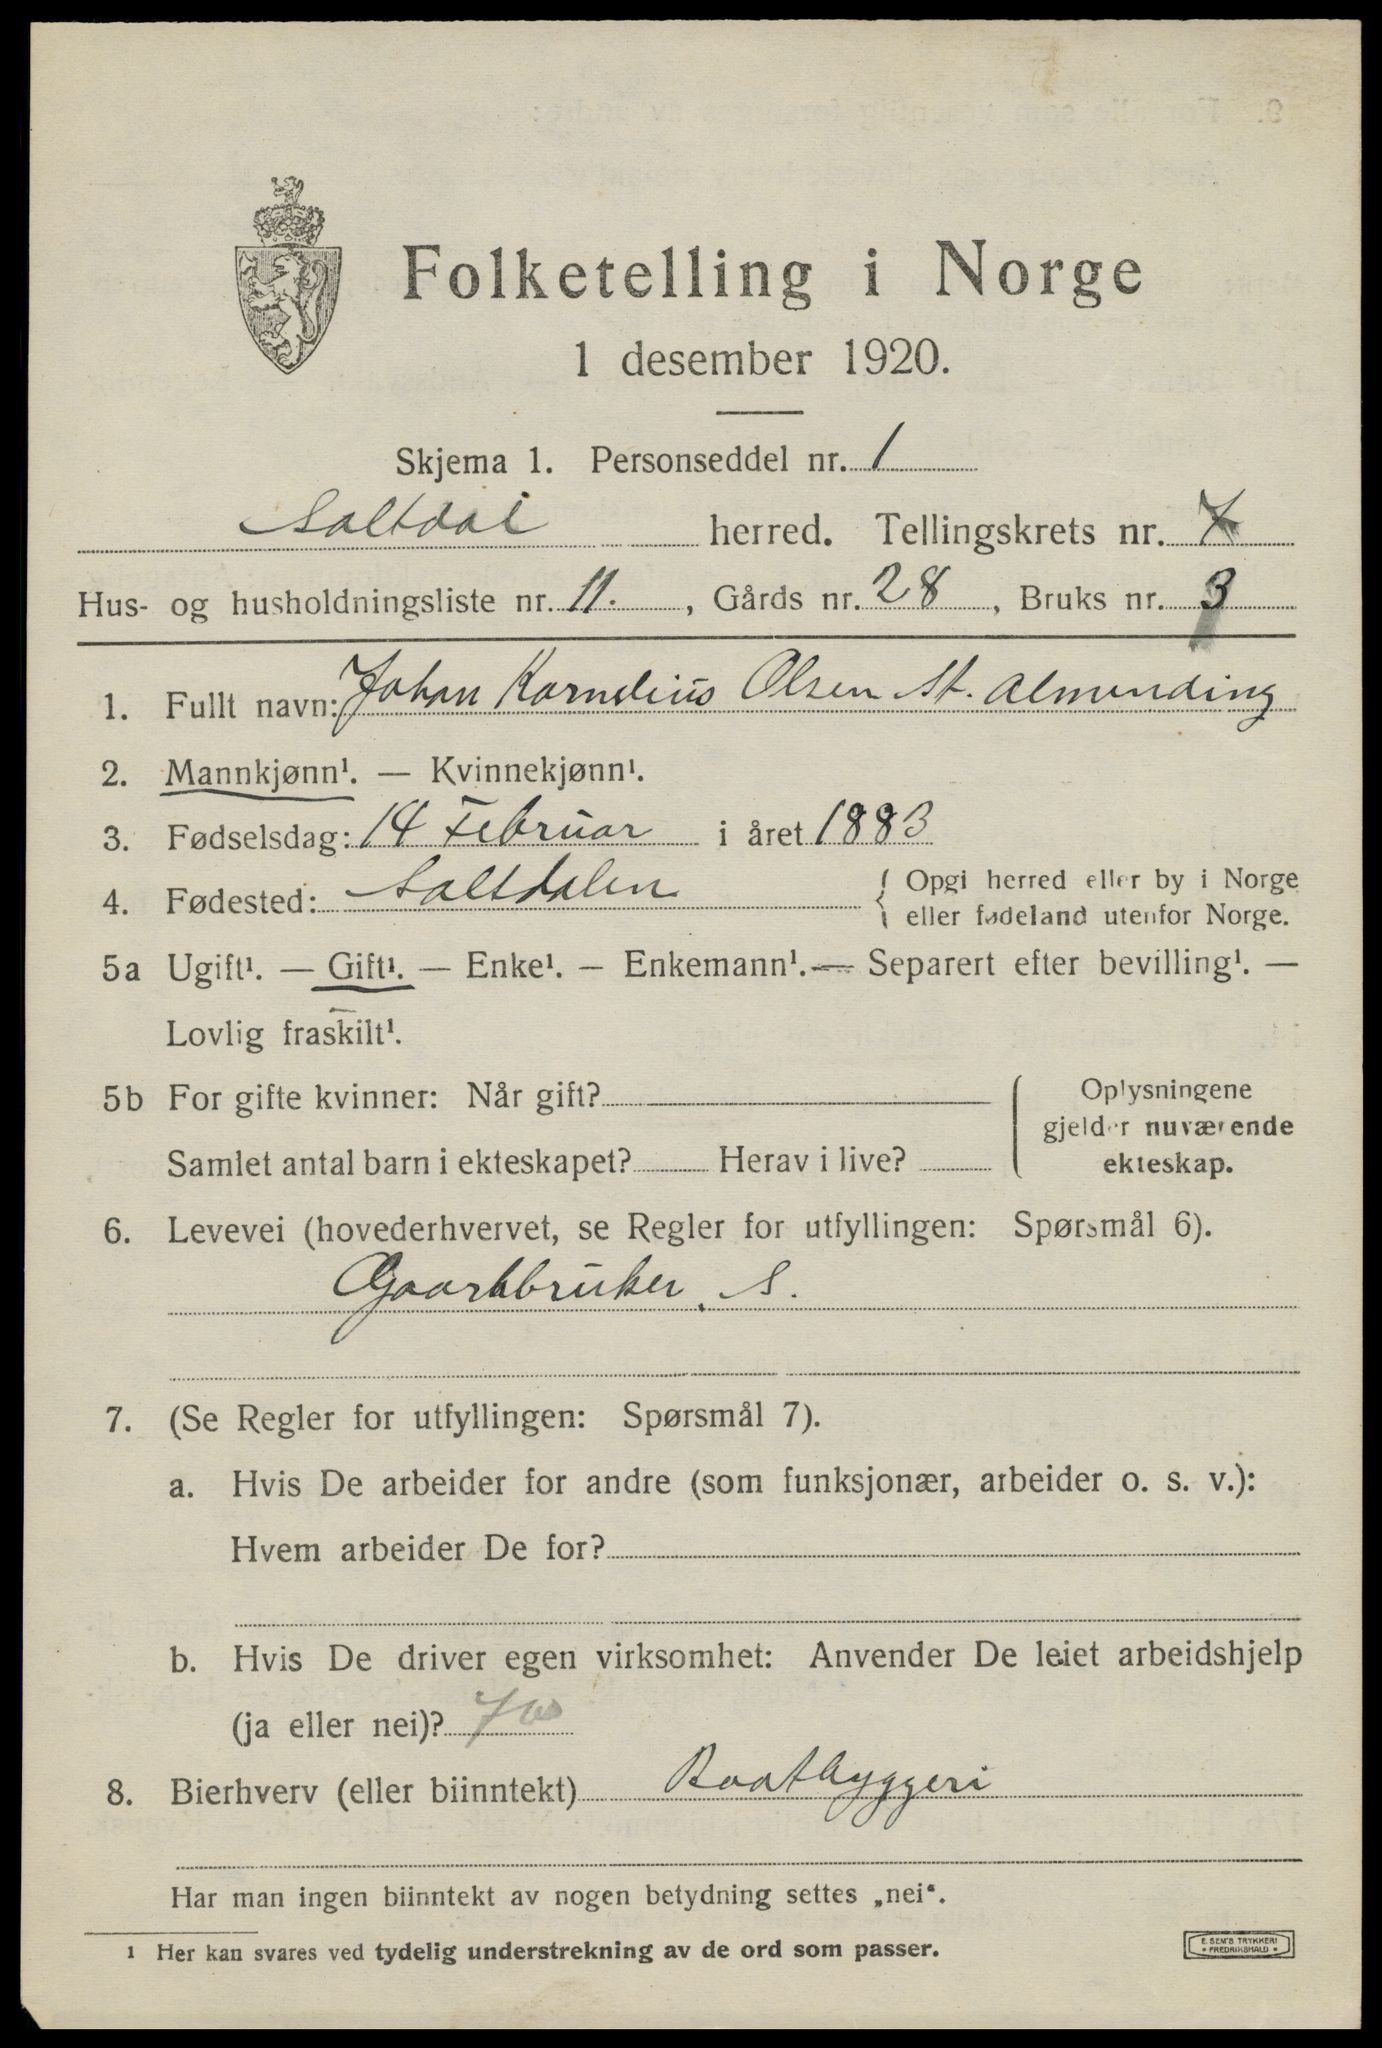 Folketelling i Norge
1 desember 1920.
Skjema 1. Personseddel nr. 1
Saltdal herred. Tellingskrets nr. 7
Hus- og husholdningsliste nr. 11., Gårds nr. 28, Bruks nr. 3
1. Fullt navn: Johan Kornelius Olsen St. Almending
2. Mannkjønn¹. — Kvinnekjønn¹.
3. Fødselsdag: 14 Februar i året 1883
4. Fødested: Saltdalen { Opgi herred eller by i Norge
eller fødeland utenfor Norge.
5a Ugift¹. — Gift¹. — Enke¹. — Enkemann¹. — Separert efter bevilling¹. —
Lovlig fraskilt¹.
5b For gifte kvinner: Når gift?
Samlet antal barn i ekteskapet? Herav i live?
Oplysningene
gjelder nuværende
ekteskap.
6. Levevei (hovederhvervet, se Regler for utfyllingen: Spørsmål 6).
Gaardbruker. S.
7. (Se Regler for utfyllingen: Spørsmål 7).
a. Hvis De arbeider for andre (som funksjonær, arbeider o. s. v.):
Hvem arbeider De for?
b. Hvis De driver egen virksomhet: Anvender De leiet arbeidshjelp
(ja eller nei)?
8. Bierhverv (eller biinntekt) Baatbyggeri
Har man ingen biinntekt av nogen betydning settes „nei“.
1 Her kan svares ved tydelig understrekning av de ord som passer.
E. SEM'S TRYKKERI
• FREDRIKSHALD •